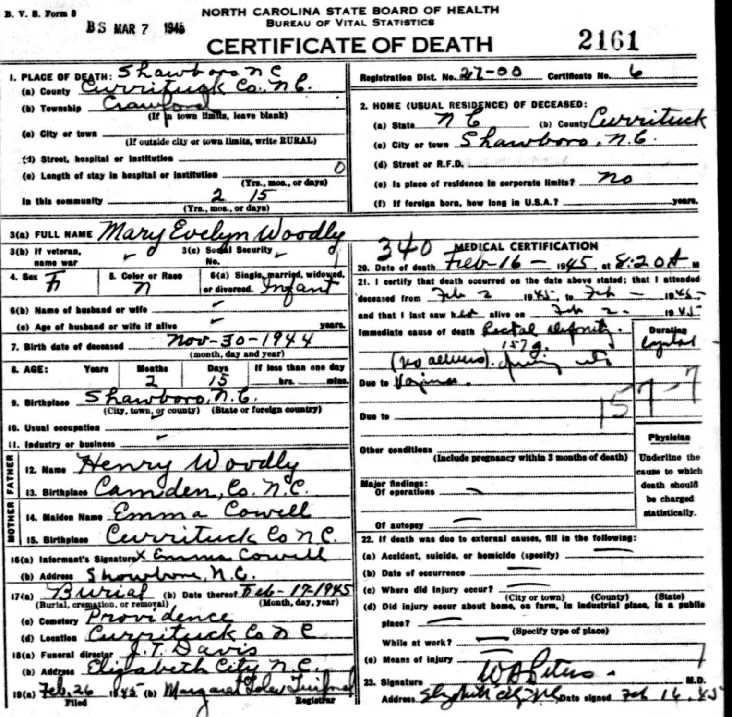 B. V. S. Form 8
NORTH CAROLINA STATE BOARD OF HEALTH
BUREAU OF VITAL STATISTICS
BS MAR 7 1945
CERTIFICATE OF DEATH
2161
1. PLACE OF DEATH: Shawboro NC
(a) County Currituck Co. N.C.
(b) Township Crawford
(If in town limits, leave blank)
(c) City or town
(If outside city or town limits, write RURAL)
(d) Street, hospital or institution
(e) Length of stay in hospital or institution 0
(Yrs., mos., or days)
In this community 2 15
(Yrs., mos., or days)
Registration Dist. No. 27-00 Certificate No. 6
2. HOME (USUAL RESIDENCE) OF DECEASED:
(a) State N C (b) County Currituck
(c) City or town Shawboro, N.C.
(d) Street or R.F.D.
(e) Is place of residence in corporate limits? no
(f) If foreign born, how long in U.S.A.? years.
3(a) FULL NAME Mary Evelyn Woodly
3(b) If veteran, name war 0
3(c) Social Security No. 0
4. Sex F
5. Color or Race n
6(a) Single, married, widowed, or divorced. Infant
6(b) Name of husband or wife
(c) Age of husband or wife if alive years.
7. Birth date of deceased Nov-30-1944
(month, day and year)
8. AGE: Years Months Days If less than one day
2 15 hrs. mins.
9. Birthplace Shawboro, N.C.
(City, town, or county) (State or foreign country)
10. Usual occupation
11. Industry or business
FATHER
12. Name Henry Woodly
13. Birthplace Camden, Co. N.C.
MOTHER
14. Maiden Name Emma Cowell
15. Birthplace Currituck Co N C.
16(a) Informant's Signature X Emma Cowell
(b) Address Shawboro, N.C.
17(a) Burial (b) Date thereof Feb-17-1945
(Burial, cremation, or removal) (Month, day, year)
(c) Cemetery Providence
(d) Location Currituck Co N C
18(a) Funeral director J. T. Davis
(b) Address Elizabeth City N.C.
19(a) Feb. 26 1945 (b) Margaret
Filed Registrar
340 MEDICAL CERTIFICATION
20. Date of death Feb-16- 1945 at 8:20 A M
21. I certify that death occurred on the date above stated; that I attended
deceased from Feb 2 1945 to Feb - 1945
and that I last saw her alive on Feb 2. 1945
Immediate cause of death Rectal
157g.
Duration
(no anus)
Due to Vagina
157-7
Due to
Other conditions
(Include pregnancy within 3 months of death)
Major findings:
Of operations
Of autopsy
Physician
Underline the
cause to which
death should
be charged
statistically.
22. If death was due to external causes, fill in the following:
(a) Accident, suicide, or homicide (specify)
(b) Date of occurrence
(c) Where did injury occur?
(City or town) (County) (State)
(d) Did injury occur about home, on farm, in industrial place, in a public
place?
(Specify type of place)
While at work?
(e) Means of injury
23. Signature M.D.
Address Elizabeth City NC Date signed Feb 16, 45